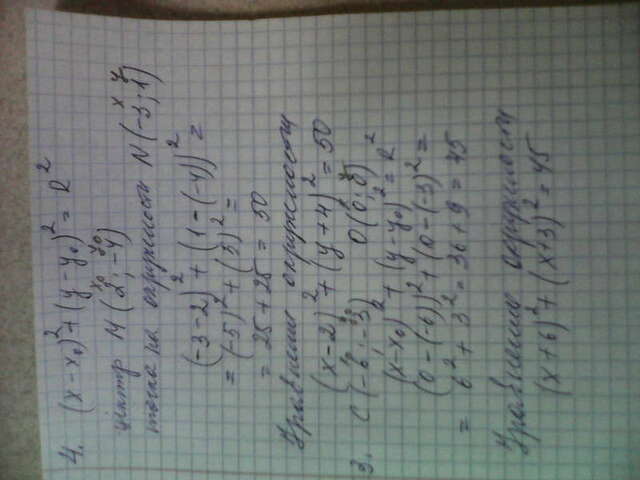 4. (x-x₀)²+(y-y₀)²=R²
x₀ y₀
центр М(2; -4)
x y
точка на окружности N(-3; 1)
(-3-2)²+(1-(-4))²=
=(-5)²+(5)²=
=25+25=50
Уравнение окружности
(x-2)²+(y+4)²=50
3. С(-6; -3) О(0; 0)
(x-x₀)²+(y-y₀)²=R²
(0-(-6))²+(0-(-3))²=
=6²+3²=36+9=45
Уравнение окружности
(x+6)²+(x+3)²=45